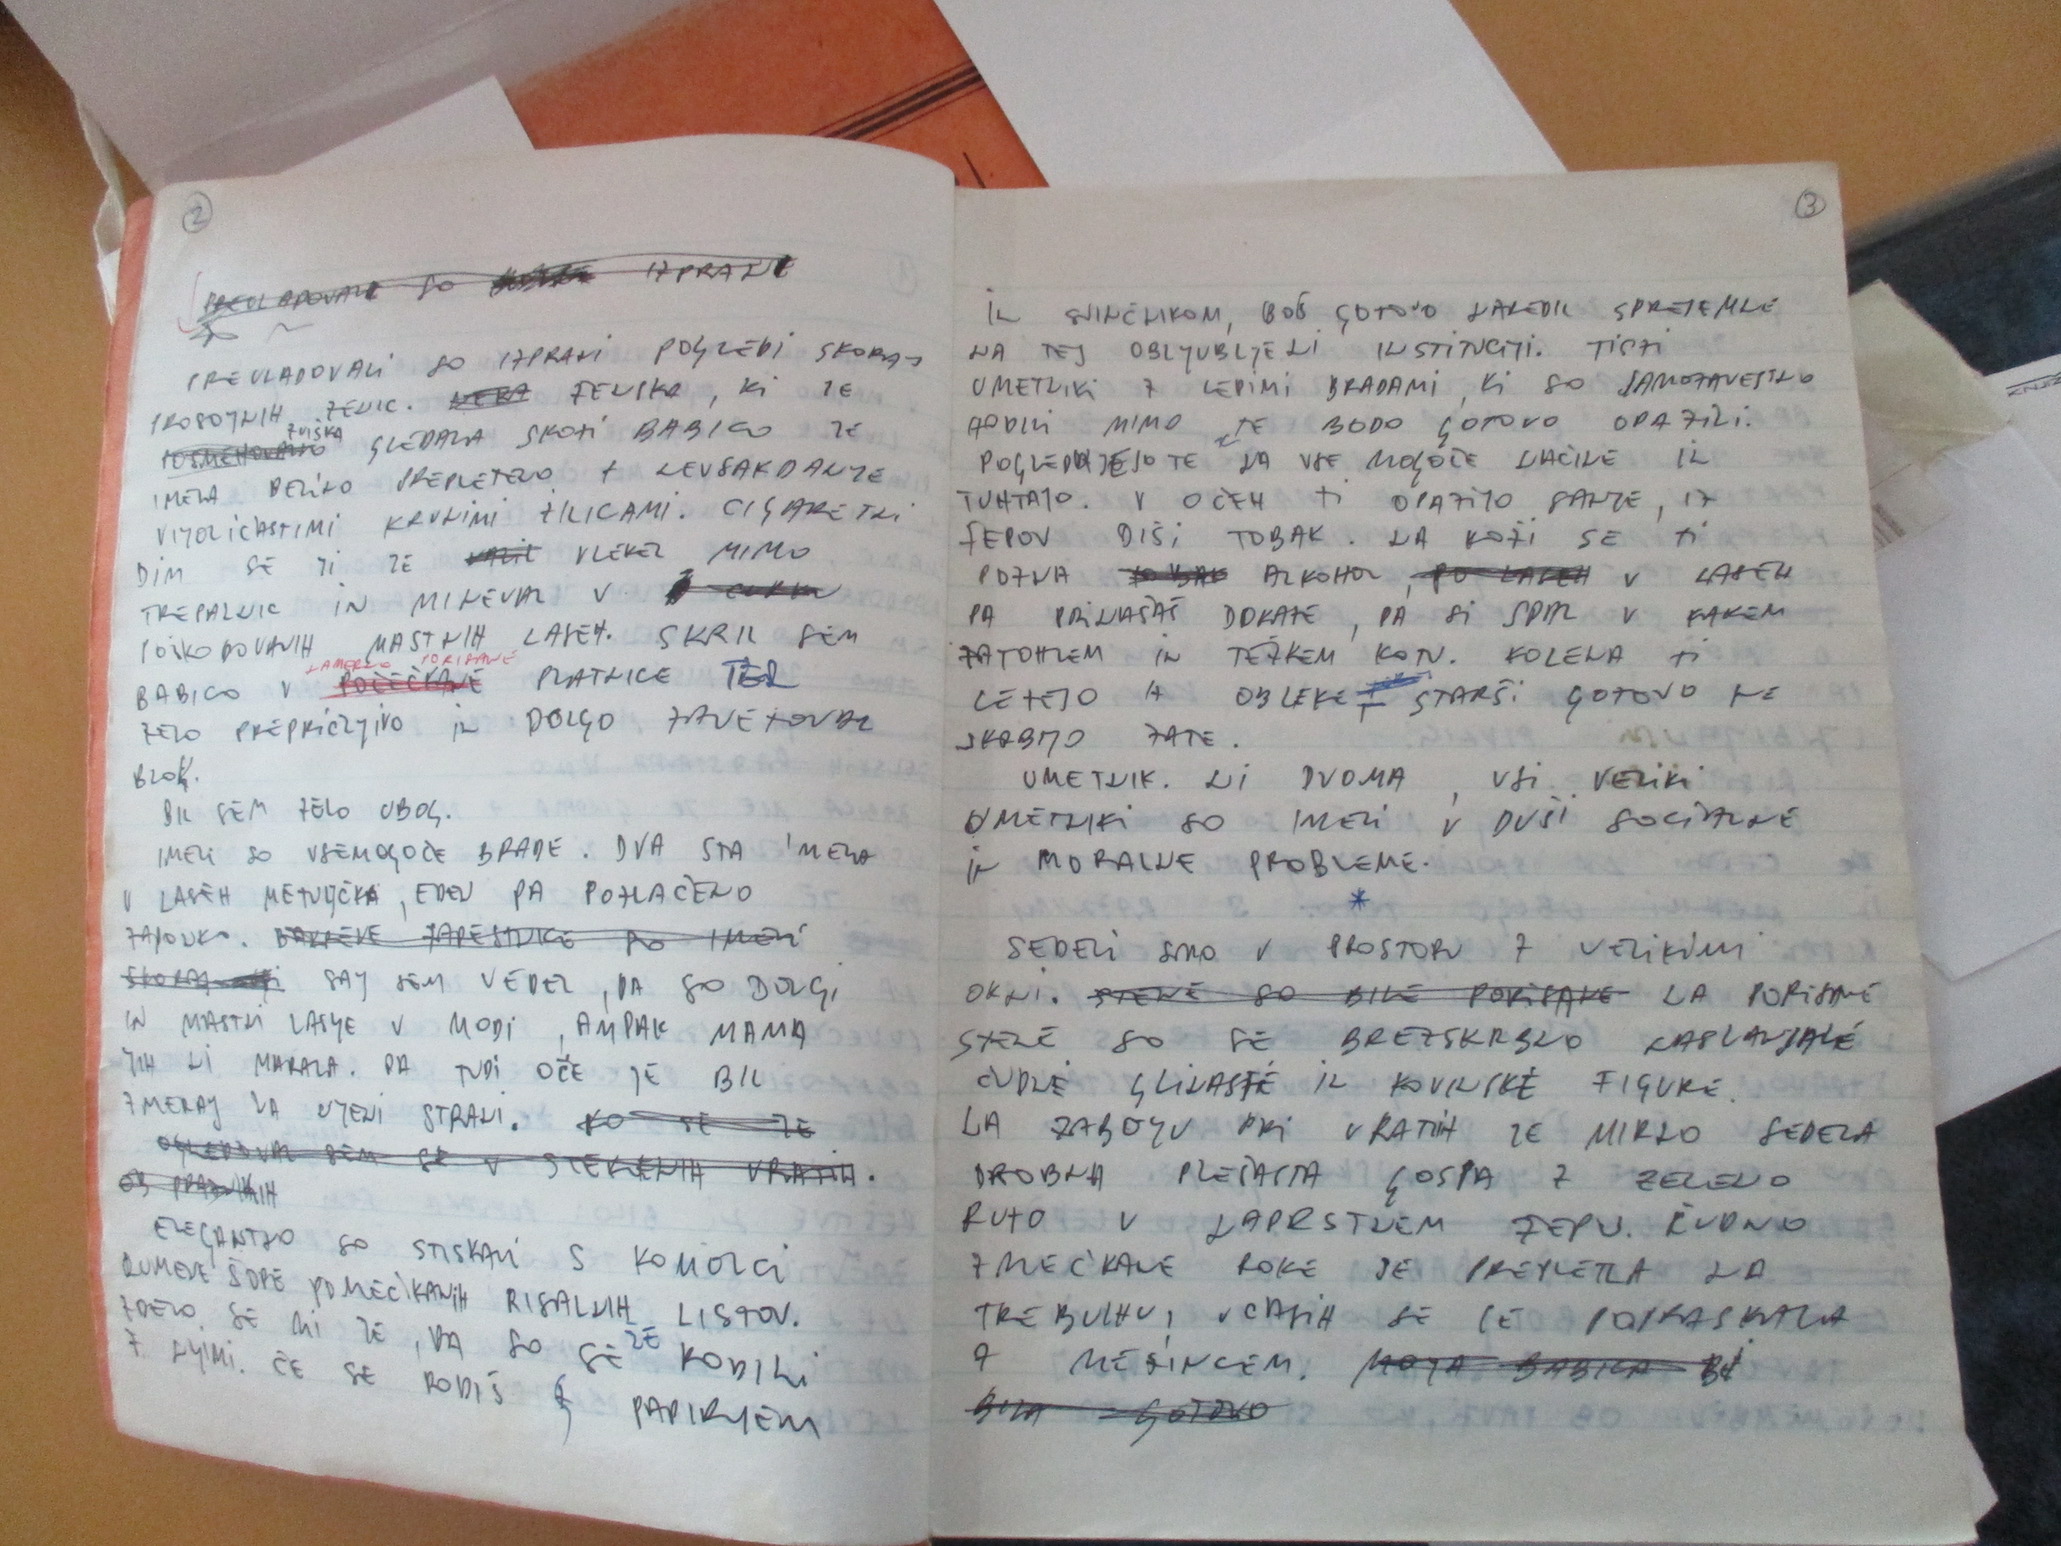 2
PREVLADOVALI SO IZPRANI
PREVLADOVALI SO IZPRANI POGLEDI SKORAJ
PROSOJNIH ZENIC. NEKA ŽENSKA, KI JE
ZVIŠKA
POSMEHOVALNO GLEDALA SKOZI BABICO JE
IMELA BELINO PREPLETENO Z NEVSAKDANJE
VIJOLIČASTIMI KRVNIMI ŽILICAMI. CIGARETNI
DIM SE JI JE VLEKEL MIMO
TREPALNIC IN MINEVAL V
POŠKODOVANIH MASTNIH LASEH. SKRIL SEM
NAMERNO PORISANE
BABICO V POČEČKANE PLATNICE TER
ZELO PREPRIČLJIVO IN DOLGO ZAVEZOVAL
BLOK.
BIL SEM ZELO UBOG.
IMELI SO VSEMOGOČE BRADE. DVA STA IMELA
V LASEH METULJČKA, EDEN PA POZLAČENO
ZAPONKO. BAKRENE ZAPESTNICE SO IMELI
SKORAJ VSI SAJ SEM VEDEL, DA SO DOLGI
IN MASTNI LASJE V MODI, AMPAK MAMA
JIH NI MARALA. PA TUDI OČE JE BIL
ZMERAJ NA NJENI STRANI. KO SE JE
OGLEDOVAL SEM SE V STEKLENIH VRATIH.
OB PRAZNIKIH
ELEGANTNO SO STISKALI S KOMOLCI
RUMENE ŠOPE POMEČKANIH RISALNIH LISTOV.
ZDELO SE MI JE, DA SO SE ŽE RODILI
Z NJIMI. ČE SE RODIŠ S PAPIRJEM
3
IN SVINČNIKOM, BOŠ GOTOVO NAREDIL SPREJEMNE
NA TEJ OBLJUBLJENI INSTITUCIJI. TISTI
UMETNIKI Z LEPIMI BRADAMI, KI SO SAMOZAVESTNO
HODILI MIMO TE BODO GOTOVO OPAZILI.
POGLEDUJEJO TE NA VSE MOGOČE NAČINE IN
TUHTAJO. V OČEH TI OPAZIJO SANJE, IZ
ŽEPOV DIŠI TOBAK. NA KOŽI SE TI
POZNA TOBAK ALKOHOL, PO LASEH V LASEH
PA PRINAŠAŠ DOKAZE, DA SI SPAL V KAKEM
ZATOHLEM IN TEŽKEM KOTU. KOLENA TI
LEZEJO IZ OBLEKE, STARŠI GOTOVO NE
SKRBIJO ZATE.
UMETNIK. NI DVOMA, VSI VELIKI
UMETNIKI SO IMELI V DUŠI SOCIALNE
IN MORALNE PROBLEME.
*
SEDELI SMO V PROSTORU Z VELIKIMI
OKNI. STENE SO BILE PORISANE NA PORISANE
STENE SO SE BREZSKRBNO NASLANJALE
ČUDNE GLINASTE IN KOVINSKE FIGURE.
NA ZABOJU PRI VRATIH JE MIRNO SEDELA
DROBNA PLEŠASTA GOSPA Z ZELENO
RUTO V NAPRSTNEM ŽEPU. ČUDNO
ZMEČKANE ROKE JE PREPLETLA NA
TREBUHU, VČASIH SE JE POPRASKALA
Z MEZINCEM. MOJA BABICA BI
BILA GOTOVO